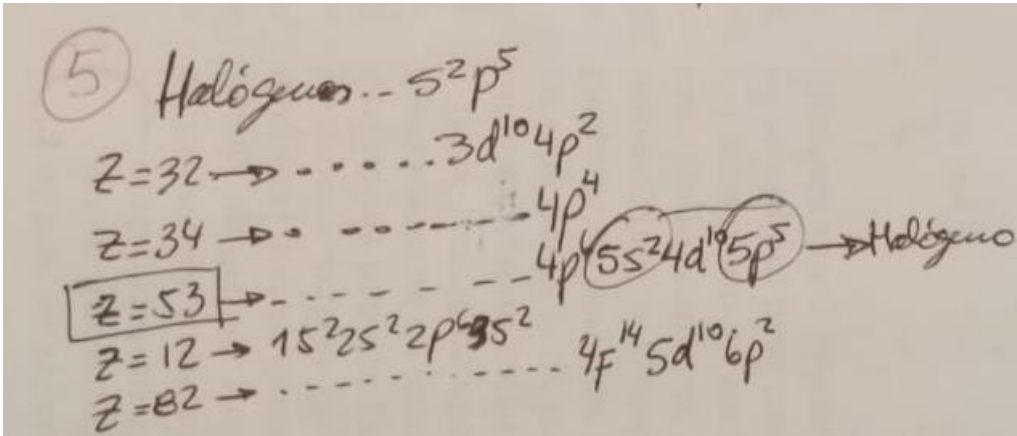 5 Halógenos... s²p⁵
Z=32 → ...... 3d¹⁰4p²
Z=34 → . ------ 4p⁴
Z=53 → ------- 4p⁶5s²4d¹⁰5p⁵ → Halógeno
Z=12 → 1s²2s²2p⁶3s²
Z=82 → .---------- 4f¹⁴5d¹⁰6p²